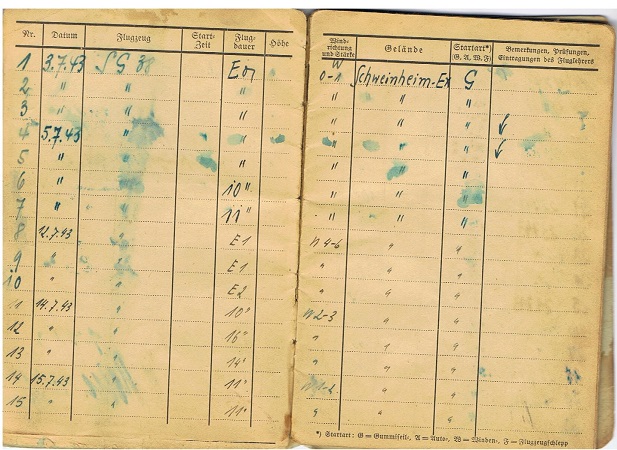 Nr. Datum Flugzeug Start-Zeit Flug-dauer Höhe Wind-richtung und Stärke Gelände Startart*) (G. A. W. F) Bemerkungen, Prüfungen, Eintragungen des Fluglehrers
1 3.7.43 SG 38 W 0-1 Schweinheim-Ex G
2 " " " " " "
3 " " " " " "
4 5.7.43 " " " " "
5 " " " " " "
6 " " 10" " " "
7 " " 11" " " "
8 12.7.43 " E1 W 4-6 " "
9 " " E1 " " "
10 " " E2 " " "
11 14.7.43 " 10" W 2-3 " "
12 " " 16" " " "
13 " " 14" " " "
14 15.7.43 " 11" " "
15 " " 11" " " "
*) Startart: G = Gummiseil-, A = Auto-, W = Winden-, F = Flugzeugschlepp